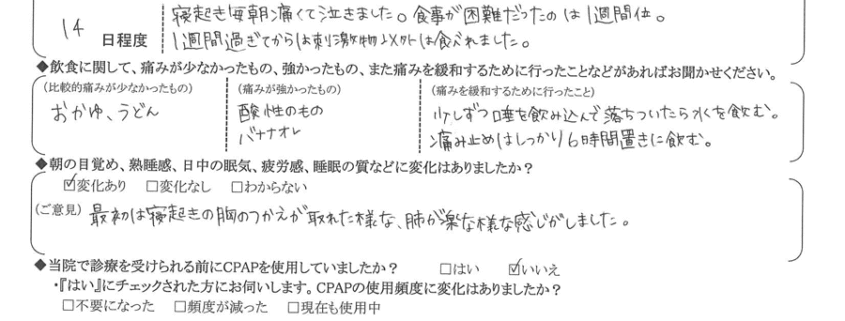 14 日程度
寝起き毎朝痛くて泣きました。食事が困難だったのは1週間位。
1週間過ぎてからは刺激物以外は食べれました。
◆飲食に関して、痛みが少なかったもの、強かったもの、また痛みを緩和するために行ったことなどがあればお聞かせください。
(比較的痛みが少なかったもの)
おかゆ、うどん
(痛みが強かったもの)
酸性のもの
バナナオレ
(痛みを緩和するために行ったこと)
少しずつ唾を飲み込んで落ちついたら水を飲む。
痛み止めはしっかり6時間置きに飲む。
◆朝の目覚め、熟睡感、日中の眠気、疲労感、睡眠の質などに変化はありましたか?
☑変化あり □変化なし □わからない
(ご意見) 最初は寝起きの胸のつかえが取れた様な、肺が楽な様な感じがしました。
◆当院で診療を受けられる前にCPAPを使用していましたか? □はい ☑いいえ
・『はい』にチェックされた方にお伺いします。CPAPの使用頻度に変化はありましたか?
□不要になった □頻度が減った □現在も使用中